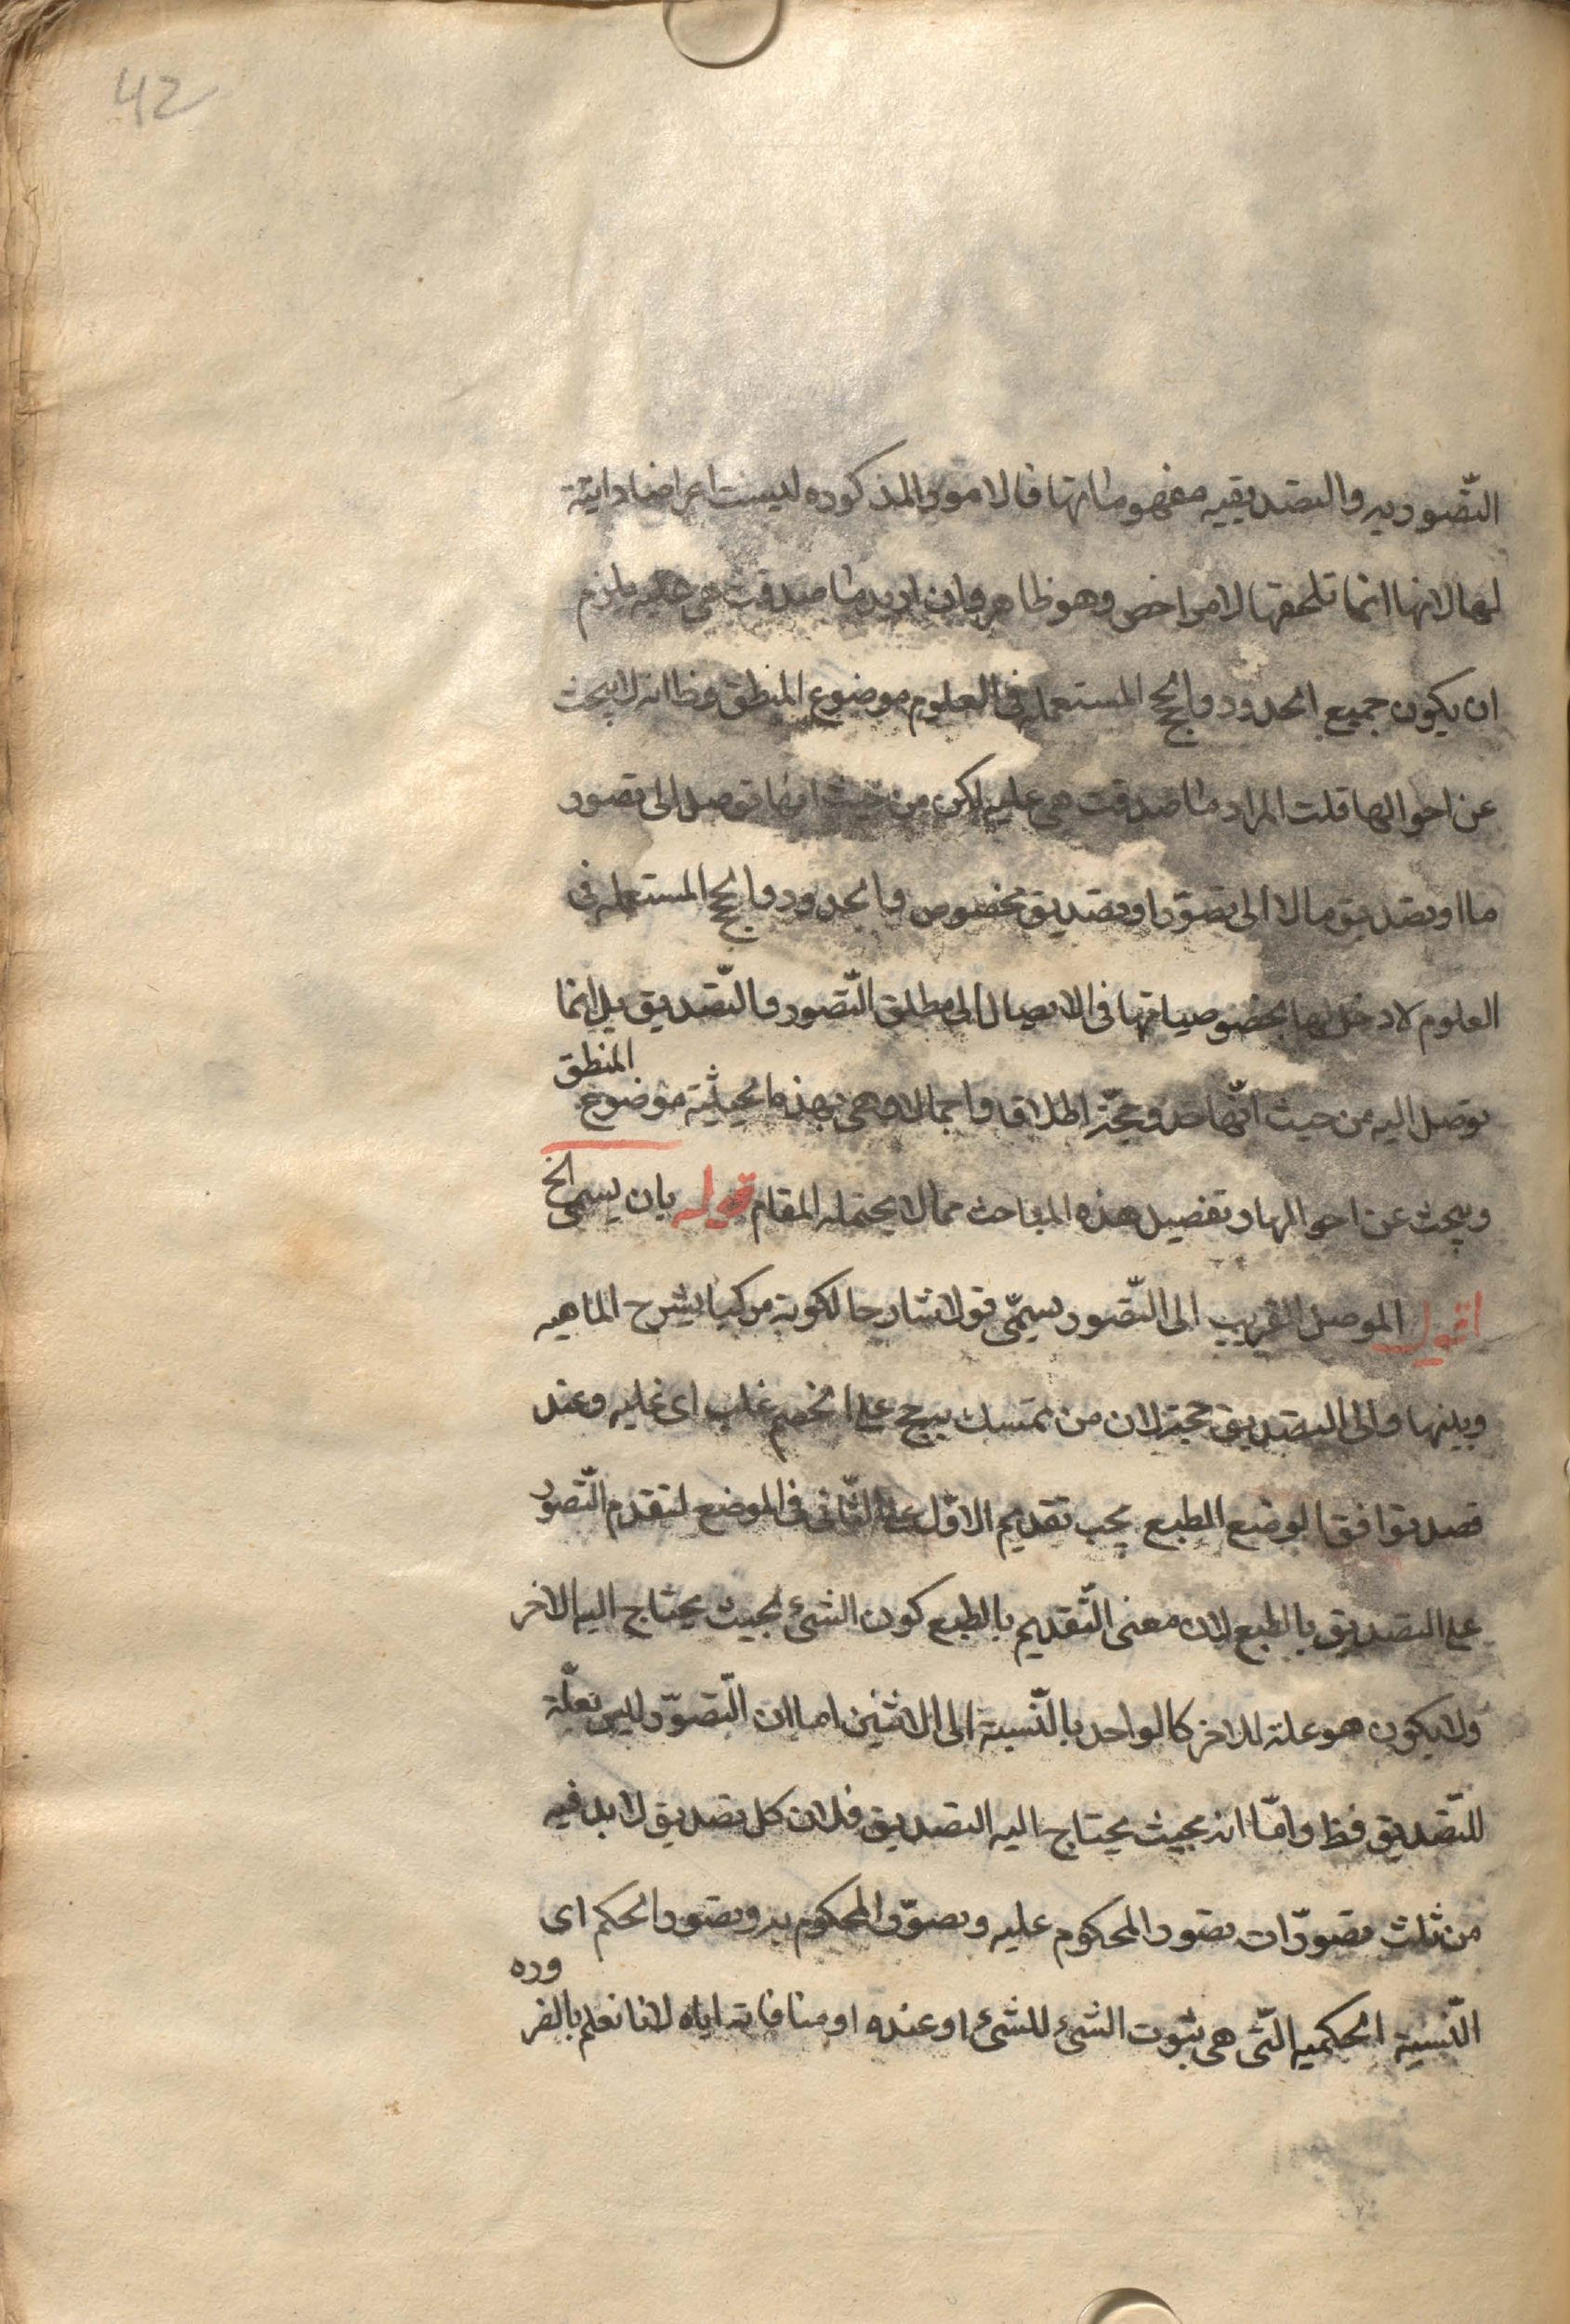 42
التّصوريه والتصديقيه مفهوماتها فالامور المذكوره ليست اعراضا ذاتية
لها لانها انما تلحقها لامر اخص وهو ظاهر وان اريد ما صدقت هى عليه يلزم
ان يكون جميع الحدود والحجج المستعمله فى العلوم موضوع المنطق وظ انه لا يبحث
عن احوالها قلت المراد ما صدقت هى عليه لكن من حيث انها توصل الى تصور
ما او تصديق ما لا الى تصوّر او تصديق مخصوص والحدود والحجج المستعمله فى
العلوم لا دخل لها بخصوصياتها فى الايصال الى مطلق التّصور والتّصديق بل انما
توصل اليه من حيث انّها حد وحجّة اطلاقا واجمالا وهى بهذه الحيثية موضوع المنطق
ويبحث عن احوالها وتفصيل هذه المباحث مما لا يحتمله المقام قوله بان يسمى الخ
اقول الموصل القريب الى التّصور يسمّى قولا شارحا لكونه مركبا يشرح الماهيه
ويبينها والى التصديق حجة لان من تمسك به حج على الخصم غلب اى غلبه وعند
قصد توافق الوضع الطبع يجب تقديم الاوّل على الثّانى فى الموضع لتقدم التّصور
على التصديق بالطبع لان معنى التّقديم بالطبع كون الشئ بحيث يحتاج اليه الاخر
ولا يكون هو علة للاخر كالواحد بالنّسبة الى الاثنين اما ان التّصوّر ليس بعلّة
للتّصديق فظ وامّا انه بحيث يحتاج اليه التصديق فلان كل تصديق لا بد فيه
من ثلث تصوّرات تصور المحكوم عليه وتصوّر المحكوم به وتصور الحكم اى
النّسبة الحكميه الّتى هى ثبوت الشئ للشئ او عنده او منافاته اياه لانا نعلم بالضروره